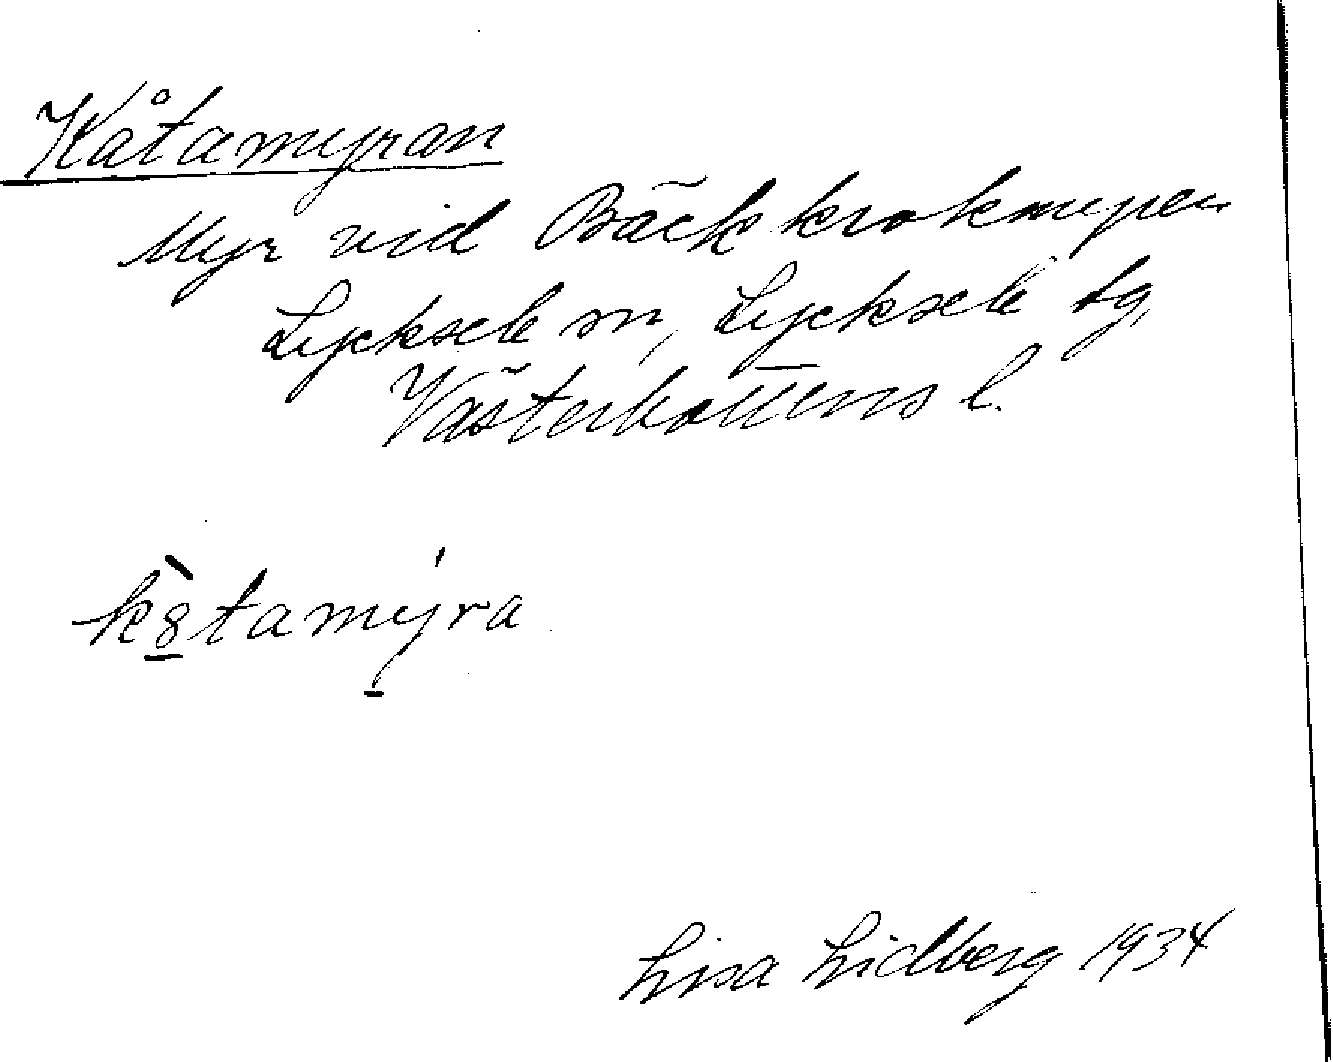 Kåtamyran
Myr vid Bäckkrokmyren
Lycksele sn, Lycksele tg,
Västerbottens l.
kò̱tamýra
Lisa Lidberg 1934